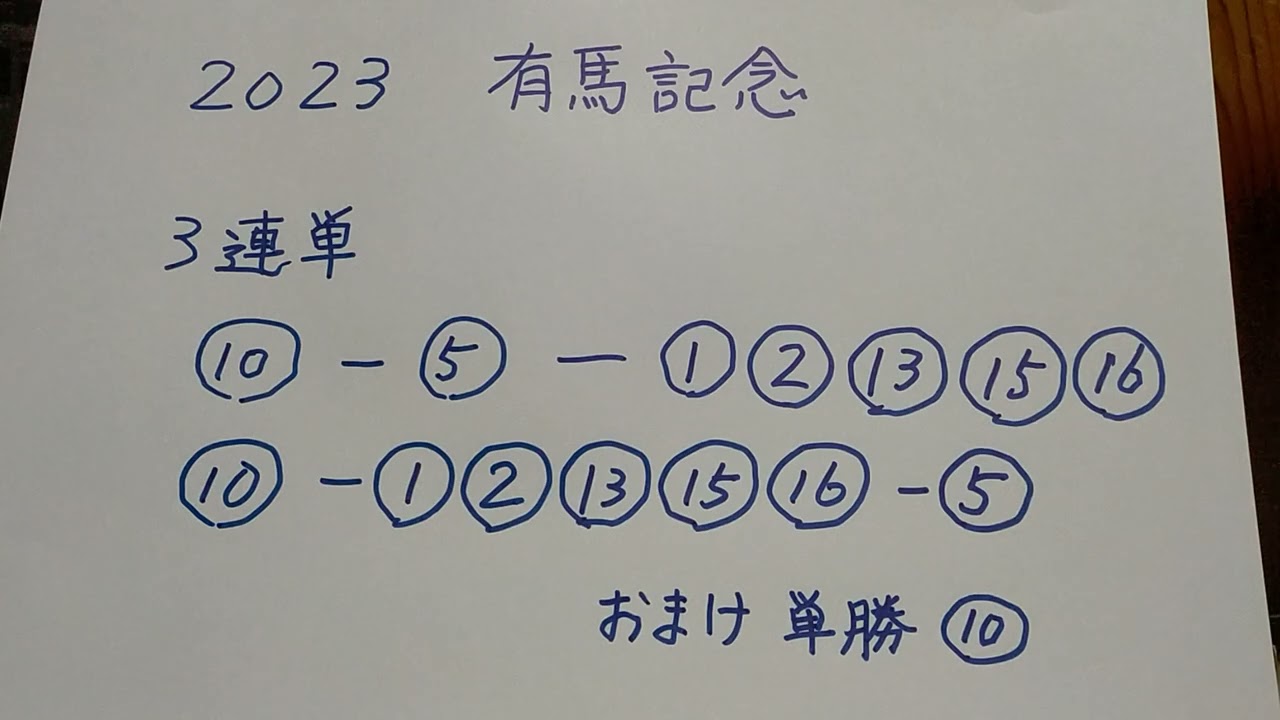 2023 有馬記念
3連単
⑩ - ⑤ - ① ② ⑬ ⑮ ⑯
⑩ - ① ② ⑬ ⑮ ⑯ - ⑤
おまけ 単勝 ⑩